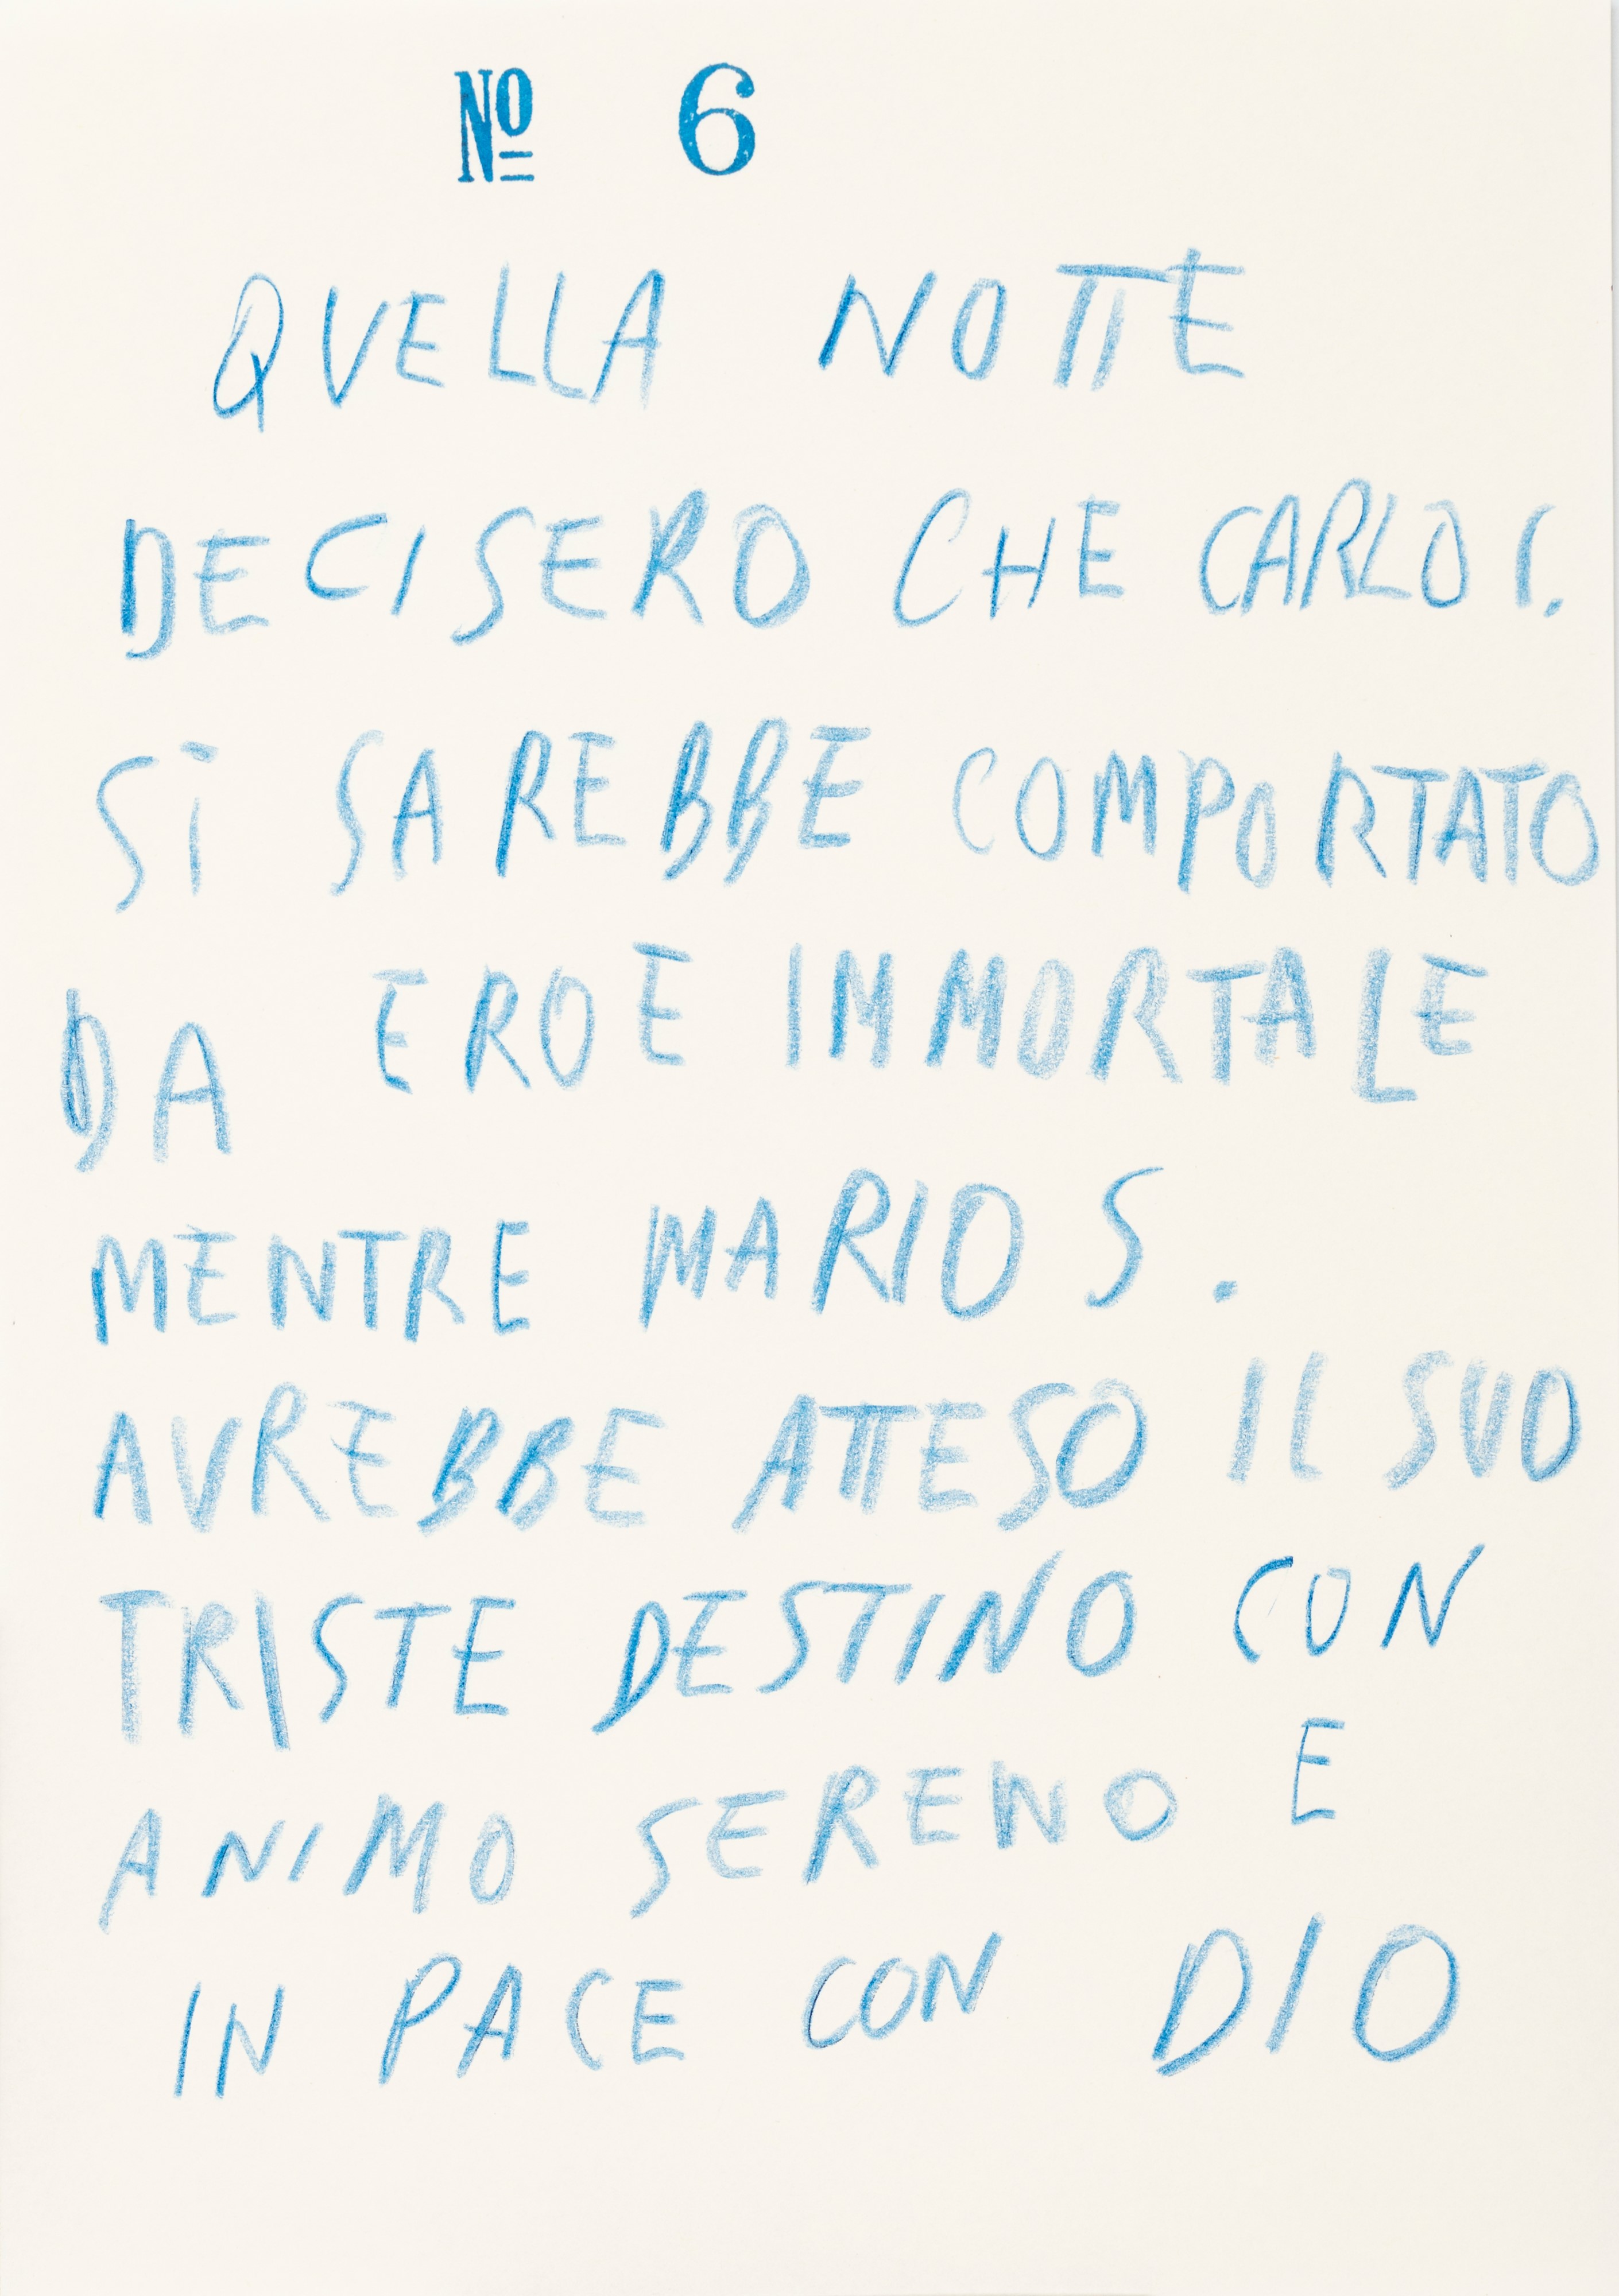 Nº 6
QVELLA NOTTE
DECISERO CHE CARLO C.
SI SAREBBE COMPORTATO
DA EROE IMMORTALE
MENTRE MARIO S.
AVREBBE ATTESO IL SUO
TRISTE DESTINO CON
ANIMO SERENO E
IN PACE CON DIO